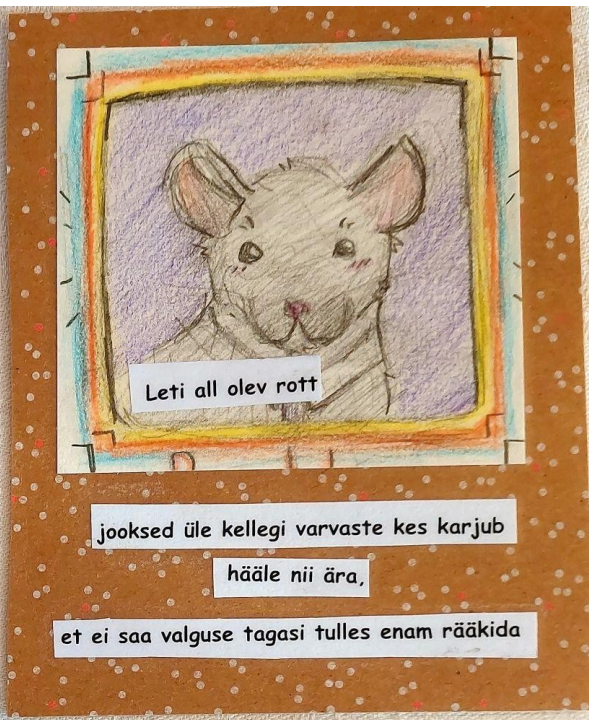 Leti all olev rott
jooksed üle kellegi varvaste kes karjub
hääle nii ära,
et ei saa valguse tagasi tulles enam rääkida